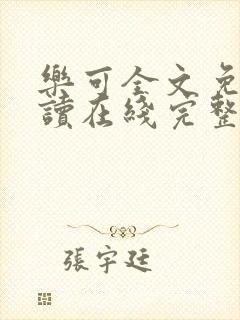 樂可全文免
讀在綫完整
張宇廷